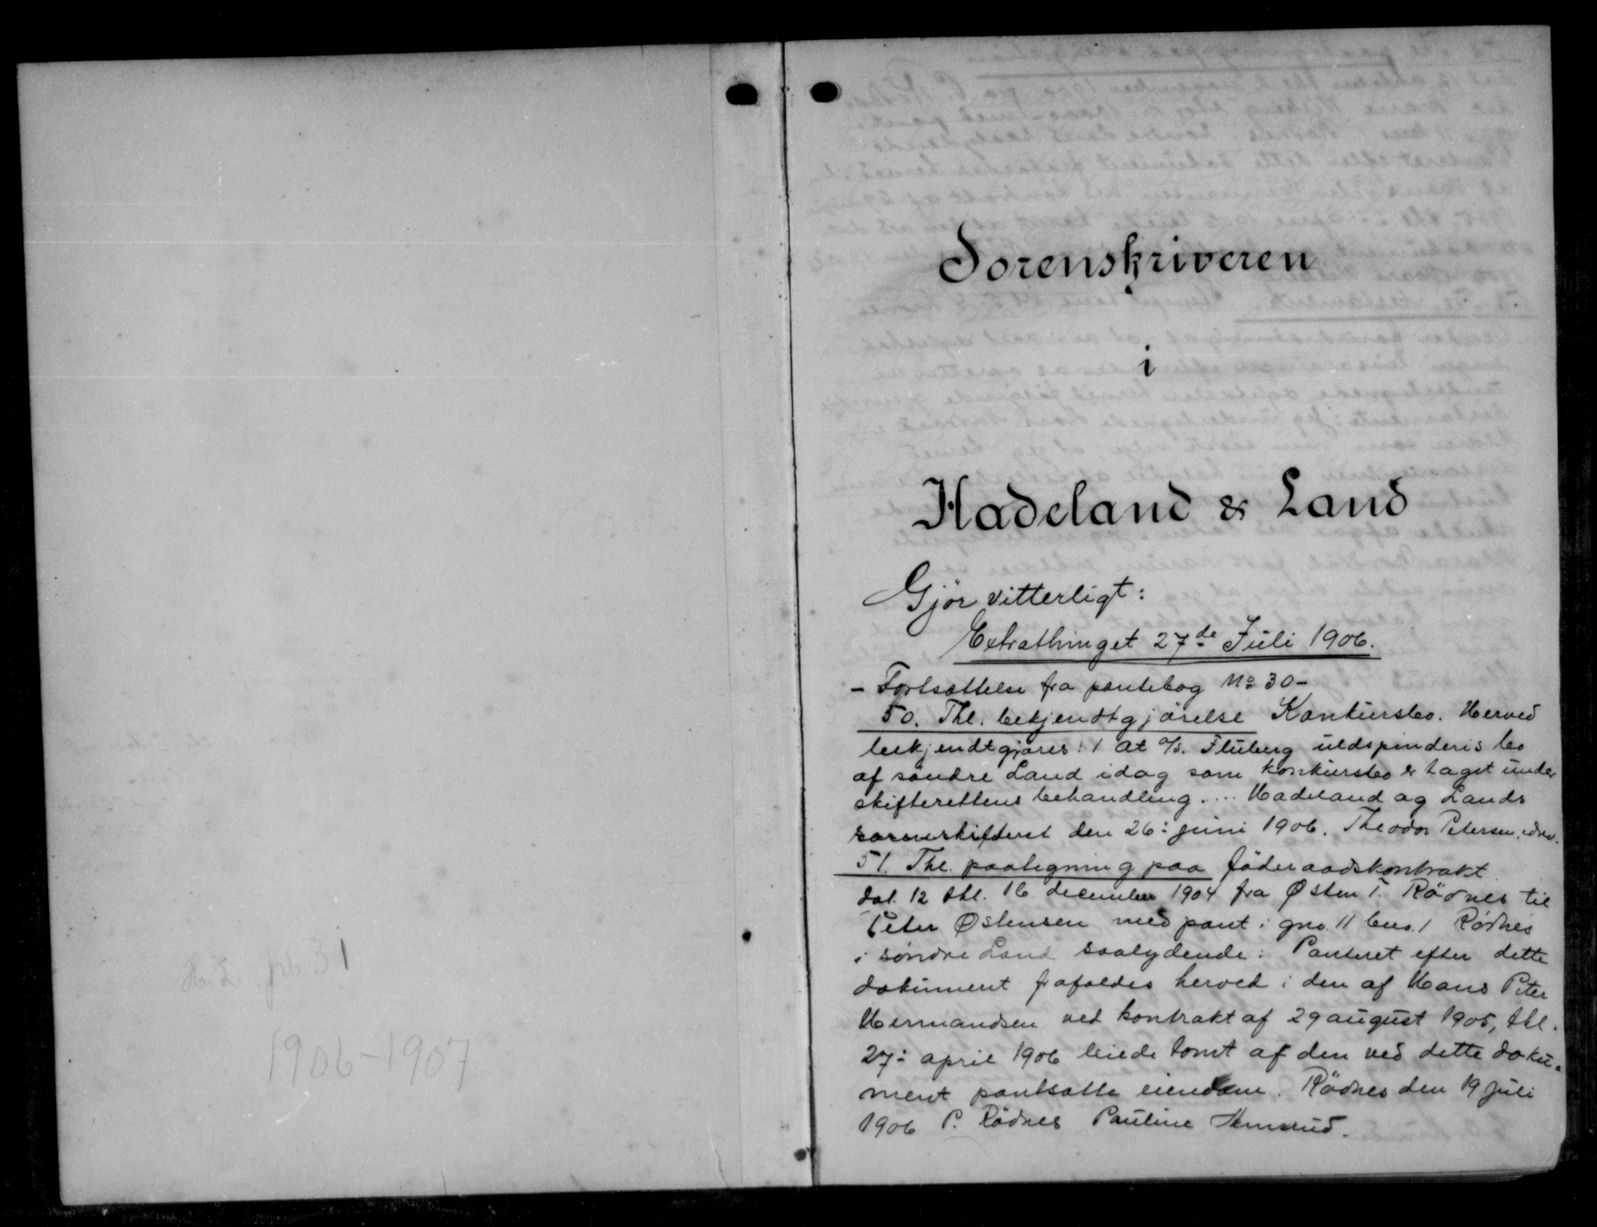 H. L. pb. 31
1906-1907
Sorenskriveren
i
Hadeland & Land
Gjör vitterligt:
Extrathinget 27de Juli 1906.
- Fortsættelse fra pantebog No 30 -
50. Thl. bekjendtgjörelse Konkursbo. Herved
bekjendtgjøres: at a/s. Fluberg uldspinderis bo
af søndre Land idag som konkursbo er taget under
skifterettens behandling.... Hadeland og Lands
sorenskriveri den 26: juni 1906. Theodor Petersen.
51. Thl. paategning paa föderaadskontrakt
dat. 12 thl. 16 december 1904 fra Østen T. Rödnes til
Peter Østensen med pant i gno. 11 bno. 1 Rödnes
i söndre Land saalydende: Panteret efter dette
dokument frafaldes herved i den af Hans Peter
Hermandsen ved kontrakt af 29 august 1905, thl.
27: april 1906 leiede tomt af den ved dette doku-
ment pantsatte eiendom. Rödnes den 19 juli
1906 P. Rödnes Pauline